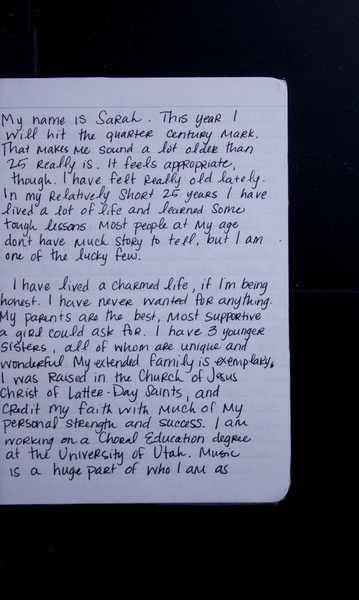 My name is Sarah. This year I
will hit the quarter century mark.
That makes me sound a lot older than
25 really is. It feels appropriate,
though. I have felt really old lately.
In my relatively short 25 years I have
lived a lot of life and learned some
tough lessons. Most people at my age
don't have much story to tell, but I am
one of the lucky few.
I have lived a charmed life, if I'm being
honest. I have never wanted for anything.
My parents are the best, most supportive
a girl could ask for. I have 3 younger
sisters, all of whom are unique and
wonderful. My extended family is exemplary.
I was raised in the Church of Jesus
Christ of Latter-Day Saints, and
credit my faith with much of my
personal strength and success. I am
working on a Choral Education degree
at the University of Utah. Music
is a huge part of who I am as